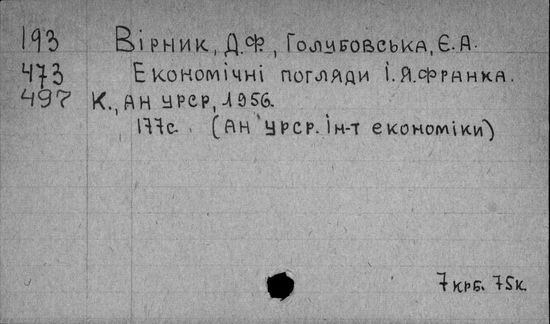 193 Вірник, Д.Ф., Голубовська, Є.А.
473 Економічні погляди І.Я.Франка.
497 К., АН УРСР, 1956.
177с. (АН УРСР. Ін-т економіки)
7 крб. 75к.